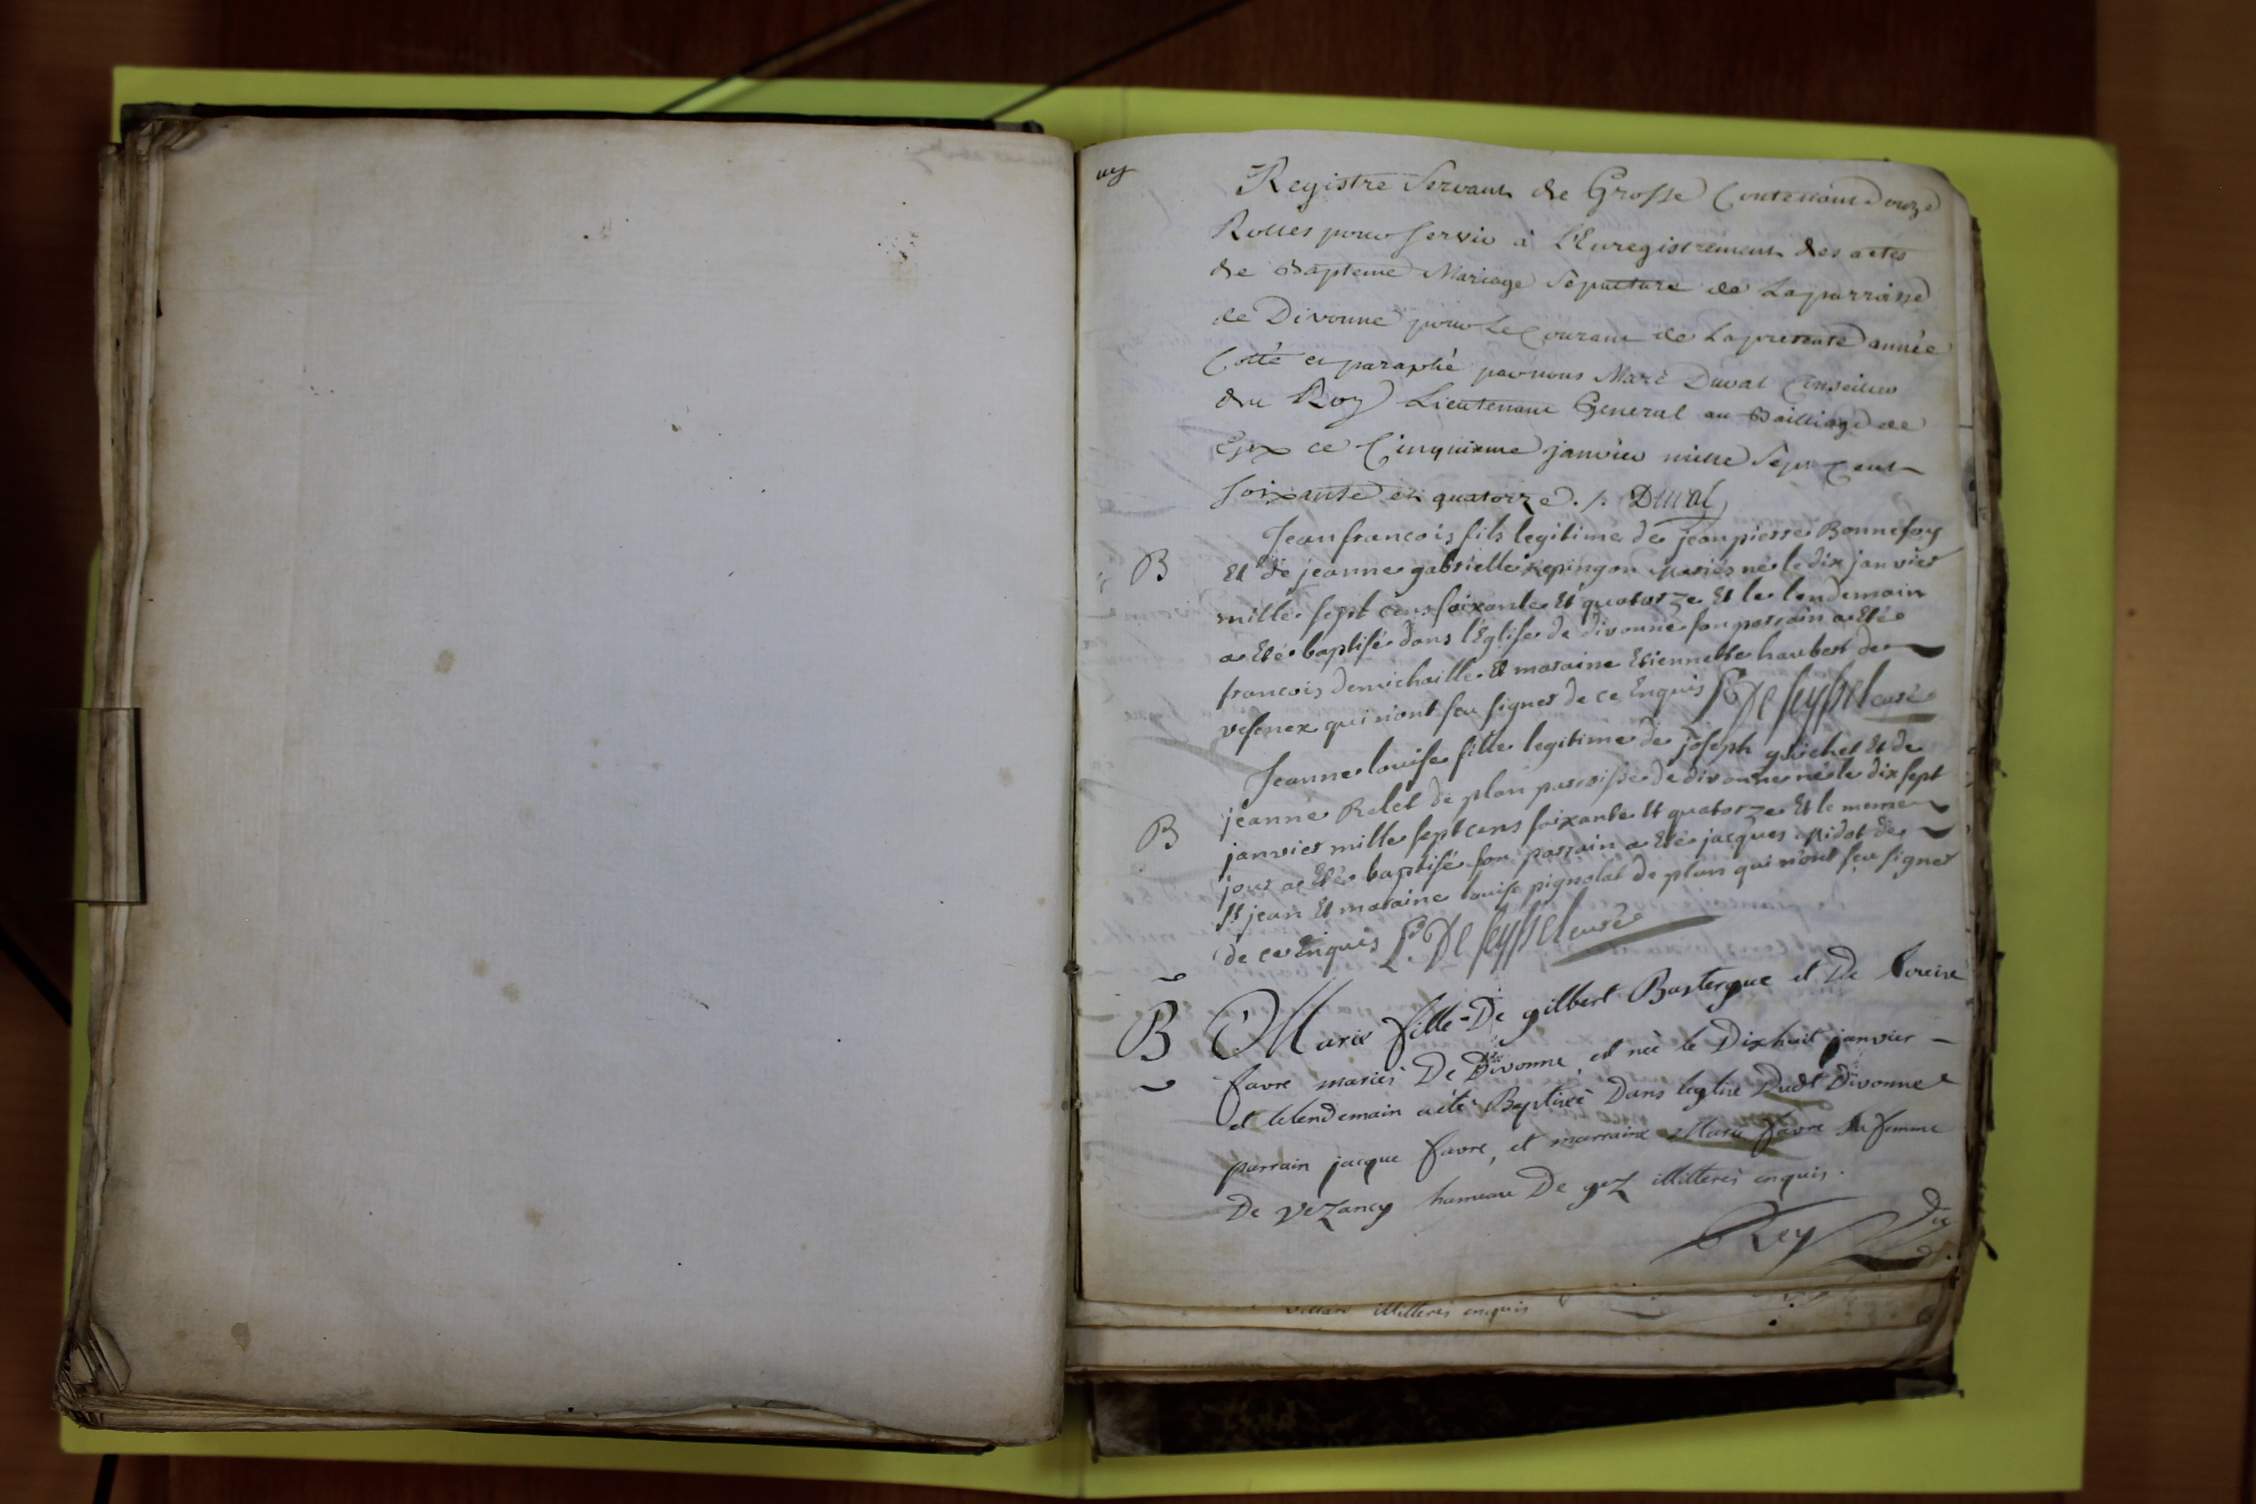 Registre Servant de Grosse Contenant douze
Rolles pour servir à l'Enregistrement des actes
de Bapteme Mariage Sepulture de La parroisse
de Divonne pour Le Courant de La presente année
Cotté et paraphé par nous Marc Duval Conseiller
du Roy Lieutenant General au Bailliage de
Gex ce Cinquieme janvier mille Sept Cent
soixante et quatorze ./. Duval
Jean francois fils legitime de jean pierre Bonnefoy
B
Et de jeanne gabrielle mariés né le dix janvier
mille sept cens soixante Et quatorze Et le lendemain
a Eté baptisé dans l'Eglise de divonne son parrain a Eté
francois demichaille Et maraine Etiennette haubert de
vesenex qui n'ont seu signer de ce Enquis De seyssel curé
Jeanne louise fille legitime de joseph guichet Et de
jeanne Relet de plan parroisse de divonne né le dix sept
B
janvier mille sept cens soixante Et quatorze Et le meme
jour a Eté baptisé son parrain a Eté jacques de
st jean Et maraine louise pignolat de plan qui n'ont seu signer
de ce Enquis De seyssel curé
B
Marie fille De gilbert Bastergue et De
favre mariés De Divonne, est née le Dixhuit janvier
et le lendemain a été Baptisée Dans leglise Dudt Divonne
parrain jacque favre, et marraine Marie favre sa femme
De Vezancy hameau De gex illitterés enquis.
Rey
illitterés enquis